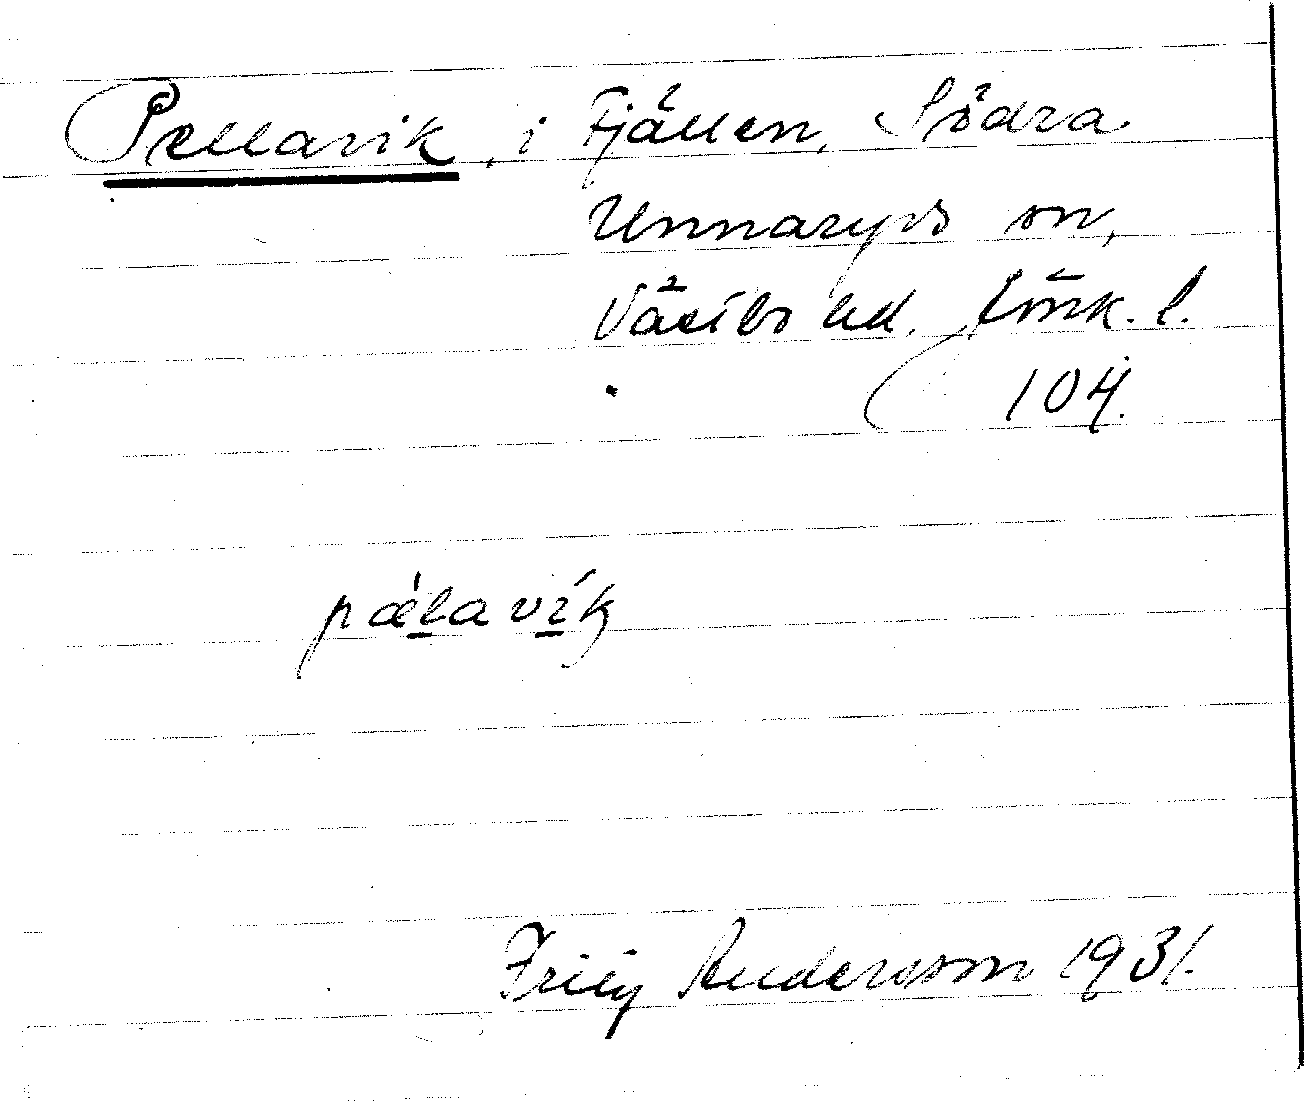 Pellavik, i Fjällen, Södra
Unnaryds sn,
Västbo hd. Jönk. l.
104.
pæ̀lavík
Frity Andersson 1931.